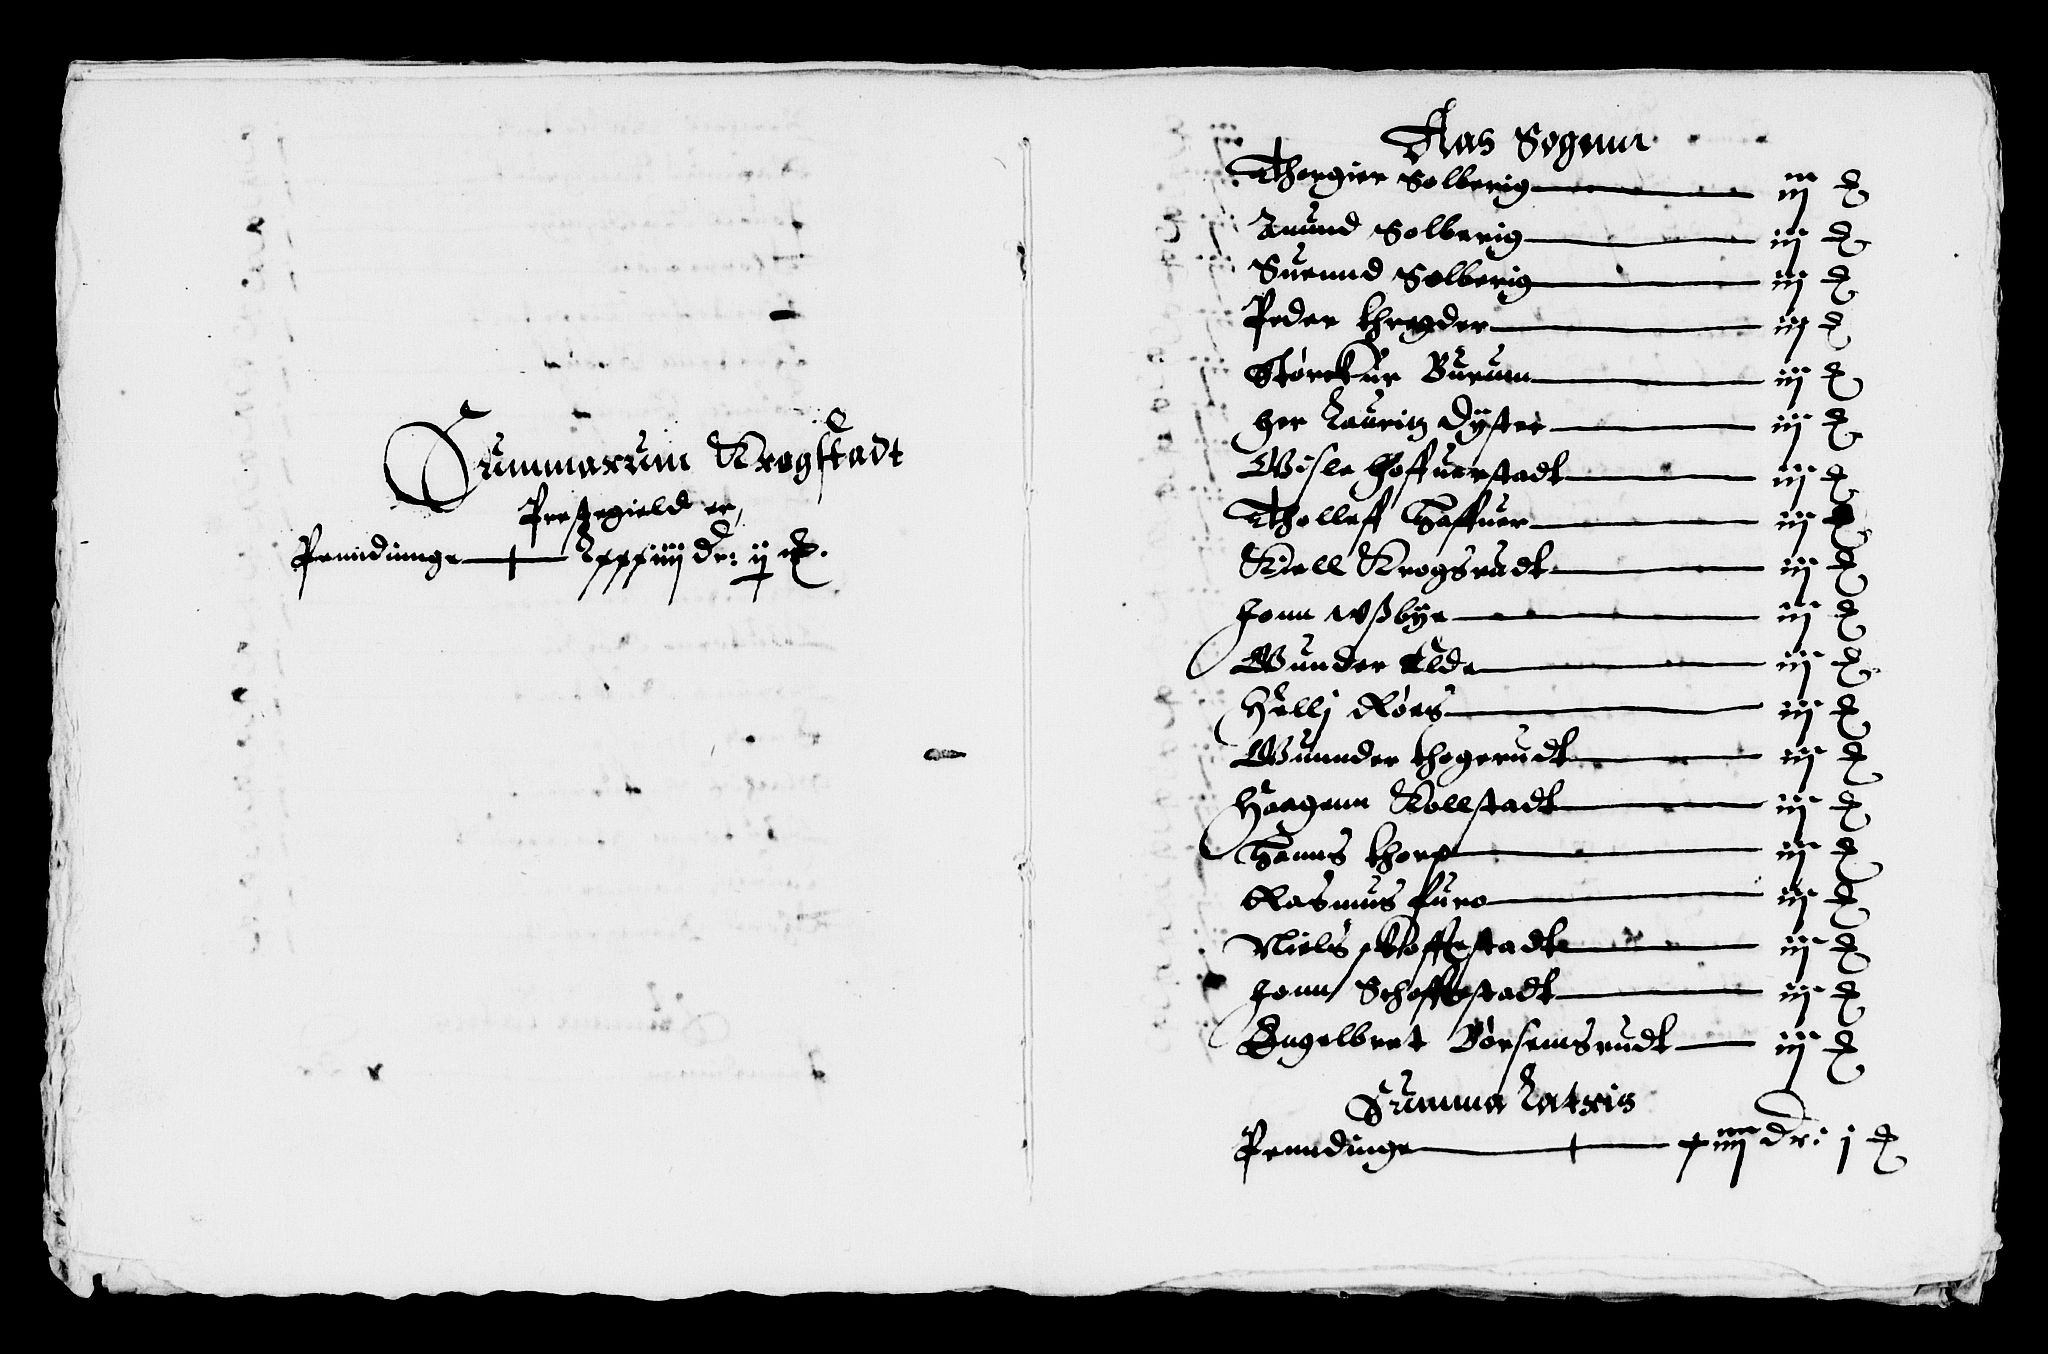 Summarum Krogstadt
Prestegield er,
Penndinnge — Lxxxiiij dr: ij ß.
Aas Sogenn
Thorgier Solberig — iij ß
Amund Solberig — iij ß
Suennd Solberig — iij ß
Peder thregder — iij ß
Størckur Burum — iij ß
her Lauritz Dÿster — iij ß
Wisle Hoffuerstadt — iij ß
Tholleff Haffuer — iij ß
Kiell Krogsrudt — iij ß
Jonn Wßbÿe — iij ß
Gunder Elde — iij ß
Hellj Røes — iij ß
Gunnder thogerudt — iij ß
Haagenn Kollstadt — iij ß
Hanns thorp — iij ß
Rasmus furo — iij ß
Niels skoffestadt — iij ß
Jonn Schoffestadt — iij ß
Engelbret Børsemsrudt — iij ß
Summa Lateris
Penndinge — xiiij dr: j ß